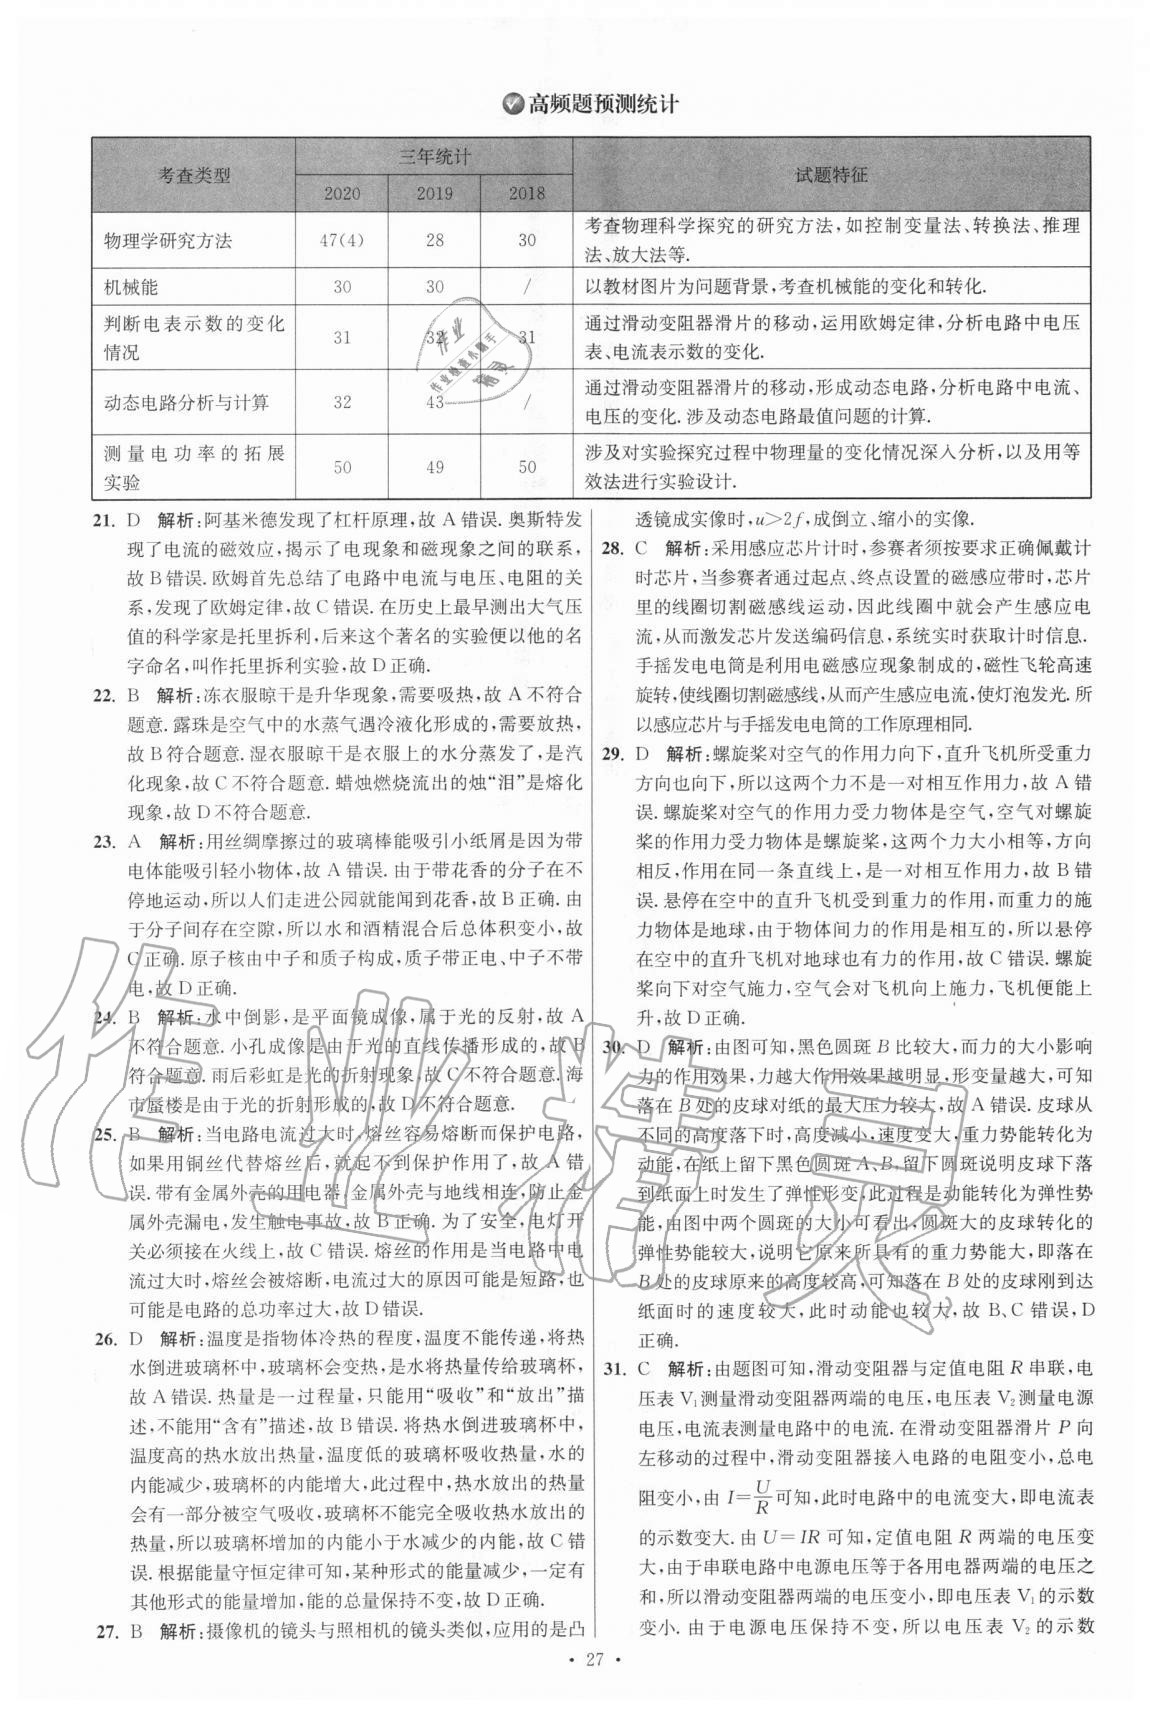 高频题预测统计
考查类型 三年统计 试题特征
2020 2019 2018
物理学研究方法 47(4) 28 30 考查物理科学探究的研究方法,如控制变量法、转换法、推理
法、放大法等.
机械能 30 30 / 以教材图片为问题背景,考查机械能的变化和转化.
判断电表示数的变化
情况 31 32 31 通过滑动变阻器滑片的移动,运用欧姆定律,分析电路中电压
表、电流表示数的变化.
动态电路分析与计算 32 43 / 通过滑动变阻器滑片的移动,形成动态电路,分析电路中电流、
电压的变化.涉及动态电路最值问题的计算.
测量电功率的拓展
实验 50 49 50 涉及对实验探究过程中物理量的变化情况深入分析,以及用等
效法进行实验设计.
21. D 解析:阿基米德发现了杠杆原理,故 A 错误.奥斯特发
现了电流的磁效应,揭示了电现象和磁现象之间的联系,
故 B 错误.欧姆首先总结了电路中电流与电压、电阻的关
系,发现了欧姆定律,故 C 错误.在历史上最早测出大气压
值的科学家是托里拆利,后来这个著名的实验便以他的名
字命名,叫作托里拆利实验,故 D 正确.
22. B 解析:冻衣服晾干是升华现象,需要吸热,故 A 不符合
题意.露珠是空气中的水蒸气遇冷液化形成的,需要放热,
故 B 符合题意.湿衣服晾干是衣服上的水分蒸发了,是汽
化现象,故 C 不符合题意.蜡烛燃烧流出的烛“泪”是熔化
现象,故 D 不符合题意.
23. A 解析:用丝绸摩擦过的玻璃棒能吸引小纸屑是因为带
电体能吸引轻小物体,故 A 错误.由于带花香的分子在不
停地运动,所以人们走进公园就能闻到花香,故 B 正确.由
于分子间存在空隙,所以水和酒精混合后总体积变小,故
C 正确.原子核由中子和质子构成,质子带正电、中子不带
电,故 D 正确.
24. B 解析:水中倒影,是平面镜成像,属于光的反射,故 A
不符合题意.小孔成像是由于光的直线传播形成的,故 B
符合题意.雨后彩虹是光的折射现象,故 C 不符合题意.海
市蜃楼是由于光的折射形成的,故 D 不符合题意.
25. B 解析:当电路电流过大时,熔丝容易熔断而保护电路,
如果用铜丝代替熔丝后,就起不到保护作用了,故 A 错
误.带有金属外壳的用电器,金属外壳与地线相连,防止金
属外壳漏电,发生触电事故,故 B 正确.为了安全,电灯开
关必须接在火线上,故 C 错误.熔丝的作用是当电路中电
流过大时,熔丝会被熔断,电流过大的原因可能是短路,也
可能是电路的总功率过大,故 D 错误.
26. D 解析:温度是指物体冷热的程度,温度不能传递,将热
水倒进玻璃杯中,玻璃杯会变热,是水将热量传给玻璃杯,
故 A 错误.热量是一过程量,只能用“吸收”和“放出”描
述,不能用“含有”描述,故 B 错误.将热水倒进玻璃杯中,
温度高的热水放出热量,温度低的玻璃杯吸收热量,水的
内能减少,玻璃杯的内能增大,此过程中,热水放出的热量
会有一部分被空气吸收,玻璃杯不能完全吸收热水放出的
热量,所以玻璃杯增加的内能小于水减少的内能,故 C 错
误.根据能量守恒定律可知,某种形式的能量减少,一定有
其他形式的能量增加,能的总量保持不变,故 D 正确.
27. B 解析:摄像机的镜头与照相机的镜头类似,应用的是凸
透镜成实像时,u>2f,成倒立、缩小的实像.
28. C 解析:采用感应芯片计时,参赛者须按要求正确佩戴计
时芯片,当参赛者通过起点、终点设置的磁感应带时,芯片
里的线圈切割磁感线运动,因此线圈中就会产生感应电
流,从而激发芯片发送编码信息,系统实时获取计时信息.
手摇发电电筒是利用电磁感应现象制成的,磁性飞轮高速
旋转,使线圈切割磁感线,从而产生感应电流,使灯泡发光.所
以感应芯片与手摇发电电筒的工作原理相同.
29. D 解析:螺旋桨对空气的作用力向下,直升飞机所受重力
方向也向下,所以这两个力不是一对相互作用力,故 A 错
误.螺旋桨对空气的作用力受力物体是空气,空气对螺旋
桨的作用力受力物体是螺旋桨,这两个力大小相等,方向
相反,作用在同一条直线上,是一对相互作用力,故 B 错
误.悬停在空中的直升飞机受到重力的作用,而重力的施
力物体是地球,由于物体间力的作用是相互的,所以悬停
在空中的直升飞机对地球也有力的作用,故 C 错误.螺旋
桨向下对空气施力,空气会对飞机向上施力,飞机便能上
升,故 D 正确.
30. D 解析:由图可知,黑色圆斑 B 比较大,而力的大小影响
力的作用效果,力越大作用效果越明显,形变量越大,可知
落在 B 处的皮球对纸的最大压力较大,故 A 错误.皮球从
不同的高度落下时,高度减小,速度变大,重力势能转化为
动能,在纸上留下黑色圆斑 A、B,留下圆斑说明皮球下落
到纸面上时发生了弹性形变,此过程是动能转化为弹性势
能,由图中两个圆斑的大小可看出,圆斑大的皮球转化的
弹性势能较大,说明它原来所具有的重力势能大,即落在
B 处的皮球原来的高度较高,可知落在 B 处的皮球刚到达
纸面时的速度较大,此时动能也较大,故 B、C 错误,D
正确.
31. C 解析:由题图可知,滑动变阻器与定值电阻 R 串联,电
压表 V₁测量滑动变阻器两端的电压,电压表 V₂测量电源
电压,电流表测量电路中的电流.在滑动变阻器滑片 P 向
左移动的过程中,滑动变阻器接入电路的电阻变小,总电
阻变小,由 I=U/R可知,此时电路中的电流变大,即电流表
的示数变大.由 U=IR 可知,定值电阻 R 两端的电压变
大,由于串联电路中电源电压等于各用电器两端的电压之
和,所以滑动变阻器两端的电压变小,即电压表 V₁的示数
变小.由于电源电压保持不变,所以电压表 V₂的示数
• 27 •
作业精灵